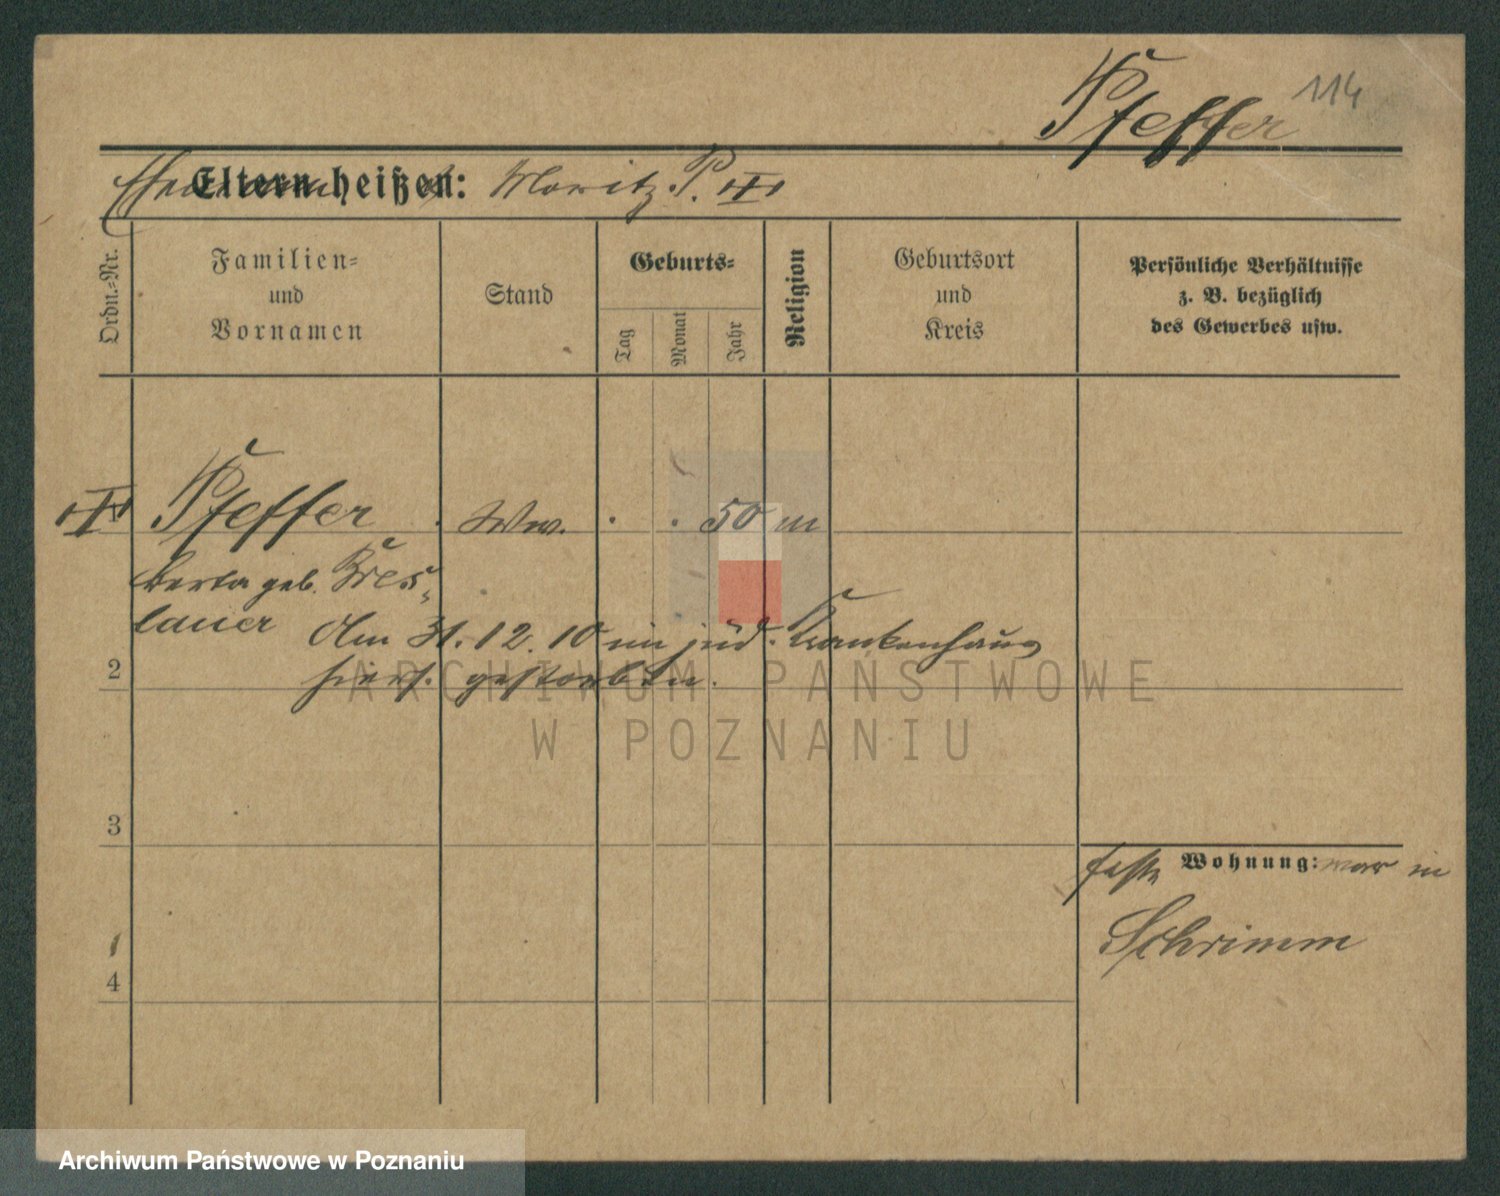 Pfeffer 114
Eltern heißen: Moritz P.
Ordn.-Nr.
Familien-
und
Vornamen
Stand
Geburts-
Tag
Monat
Jahr
Religion
Geburtsort
und
Kreis
Persönliche Verhältnisse
z. B. bezüglich
des Gewerbes usw.
Pfeffer Ww. 50 m
Berta geb. Bres-
lauer Am 31.12.10 im jüd. Krankenhaus
2 hiers. gestorben.
ARCHIWUM PAŃSTWOWE
W POZNANIU
3
feste Wohnung: war in
Schrimm
4
Archiwum Państwowe w Poznaniu